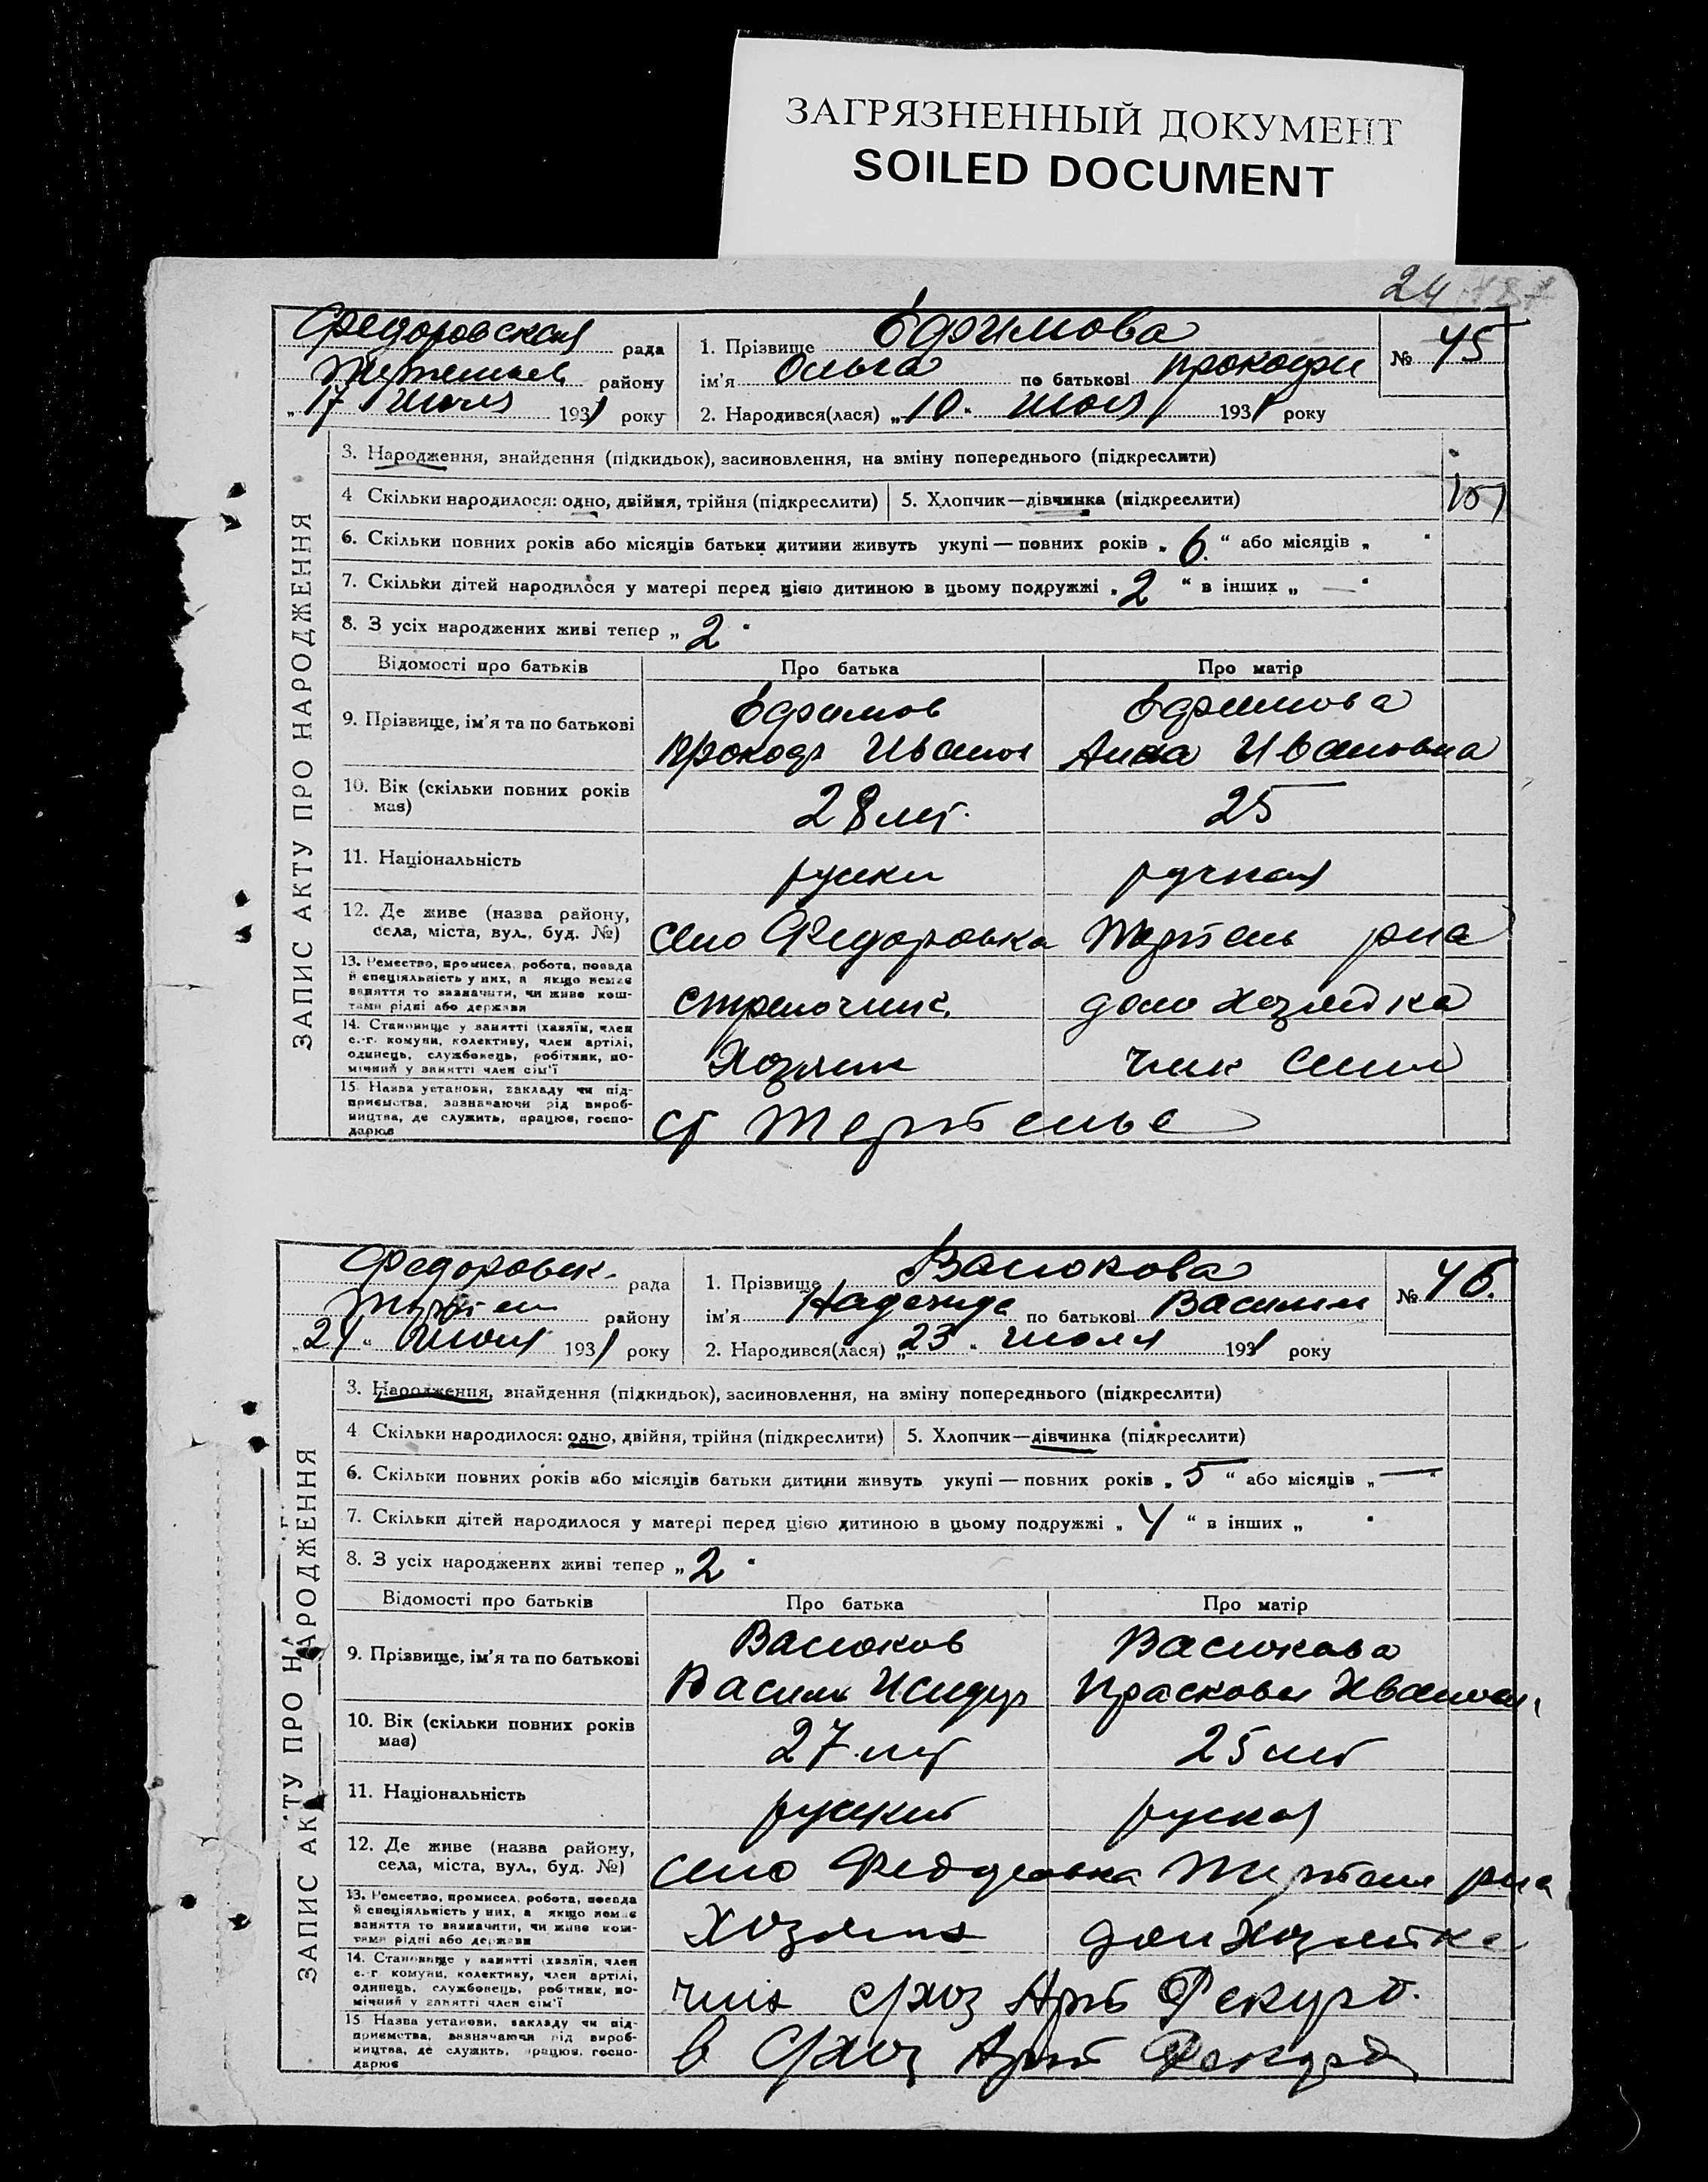 ЗАГРЯЗНЕННЫЙ ДОКУМЕНТ
SOILED DOCUMENT
24
Федоровская рада
району
„17 июля 1931 року
1. Прізвище Ефимова
ім'я Ольга по батькові Прокофи
2. Народився(лася) „10" июля 1931 року
№ 45
ЗАПИС АКТУ ПРО НАРОДЖЕННЯ
3. Народження, знайдення (підкидьок), засиновлення, на зміну попереднього (підкреслити)
4 Скільки народилося: одно, двійня, трійня (підкреслити) 5. Хлопчик—дівчинка (підкреслити)
6. Скільки повних років або місяців батьки дитини живуть укупі — повних років „6" або місяців „
7. Скільки дітей народилося у матері перед цією дитиною в цьому подружжі „2" в інших „—"
8. З усіх народжених живі тепер „2"
Відомості про батьків Про батька Про матір
9. Прізвище, ім'я та по батькові
Ефимов Ефимова
Прокоф Иванов Анна Ивановна
10. Вік (скільки повних років має) 28 лет. 25
11. Національність руски
12. Де живе (назва району, села, міста, вул., буд. №) село Федоровка рна
13. Ремество, промисел, робота, посада й спеціяльність у них, а якщо немає заняття то зазначити, чи живе коштами рідні або держави
стрелочник. дом хозяйка
14. Становище у занятті (хазяїн, член с.-г. комуни, колективу, член артілі, одинець, службовець, робітник, помічний у занятті член сім'ї
Хозяин член семи
15. Назва установи, закладу чи підприємства, зазначаючи рід виробництва, де служить, працює, господарює
ст
Федоровск. рада
району
„24" июля 1931 року
1. Прізвище Васюкова
ім'я Надежда по батькові Васили
2. Народився(лася) „23" июля 1931 року
№ 46.
ЗАПИС АКТУ ПРО НАРОДЖЕННЯ
3. Народження, знайдення (підкидьок), засиновлення, на зміну попереднього (підкреслити)
4 Скільки народилося: одно, двійня, трійня (підкреслити) 5. Хлопчик—дівчинка (підкреслити)
6. Скільки повних років або місяців батьки дитини живуть укупі — повних років „5" або місяців „—"
7. Скільки дітей народилося у матері перед цією дитиною в цьому подружжі „4" в інших „ "
8. З усіх народжених живі тепер „2"
Відомості про батьків Про батька Про матір
9. Прізвище, ім'я та по батькові
Васюков Васюкова
Васили Исидор Прасковья Иванов.
10. Вік (скільки повних років має) 27 лет 25 лет
11. Національність руский руская
12. Де живе (назва району, села, міста, вул., буд. №) село рна
13. Ремество, промисел, робота, посада й спеціяльність у них, а якщо немає заняття то зазначити, чи живе коштами рідні або держави
Хозяин дом хозяйка
14. Становище у занятті (хазяїн, член с.-г. комуни, колективу, член артілі, одинець, службовець, робітник, помічний у занятті член сім'ї
член с/хоз Арт
15 Назва установи, закладу чи підприємства, зазначаючи рід виробництва, де служить, працює, господарює
в с/хоз Арт